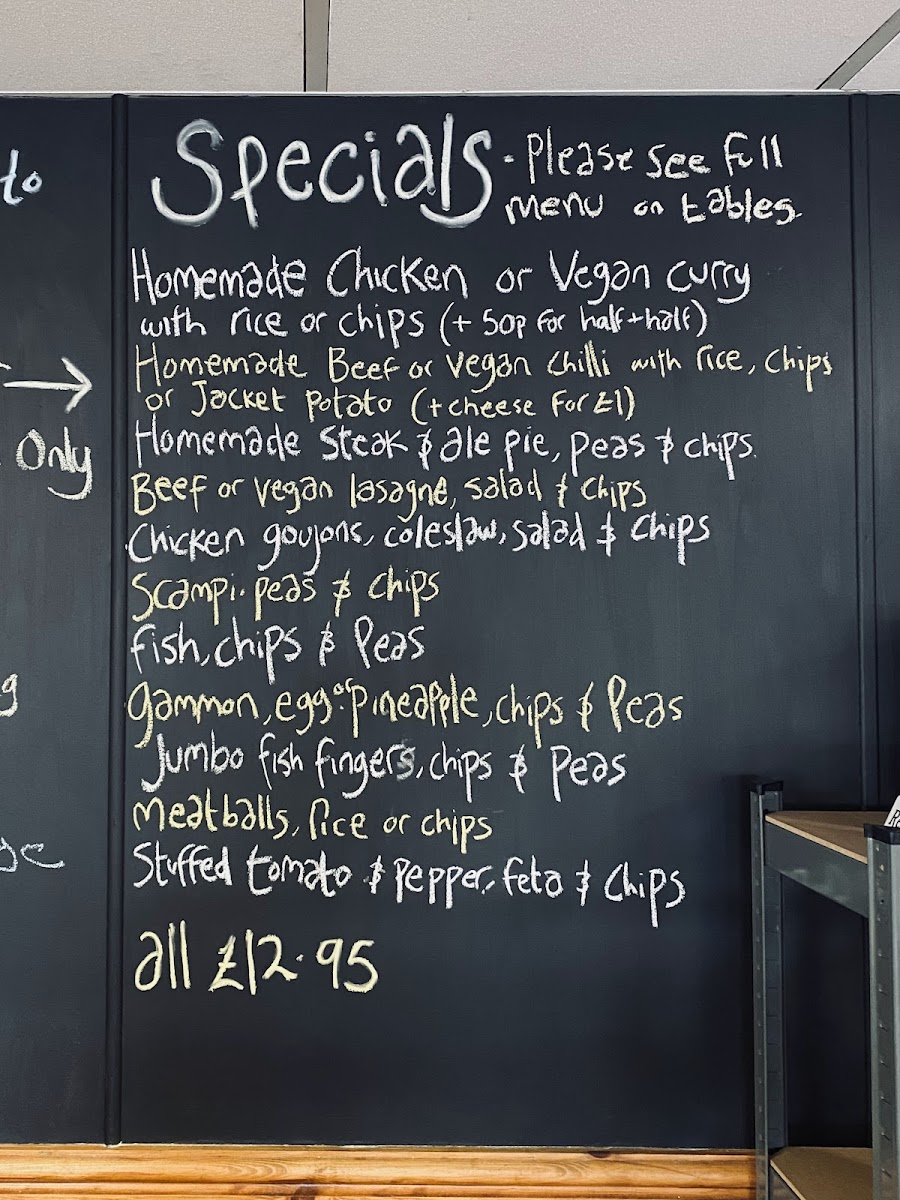 Specials - Please see full
menu on tables
Homemade Chicken or Vegan curry
with rice or chips (+ 50p for half + half)
Homemade Beef or Vegan Chilli with rice, Chips
or Jacket Potato (+ cheese for £1)
Homemade Steak & ale pie, peas & chips.
Beef or vegan lasagne, salad & chips
Chicken goujons, coleslaw, salad & chips
Scampi. peas & chips
fish, chips & Peas
gammon, egg or Pineapple, chips & Peas
Jumbo fish fingers, chips & Peas
Meatballs, Rice or chips
Stuffed tomato & Pepper, feta & Chips
all £12.95
to
Only